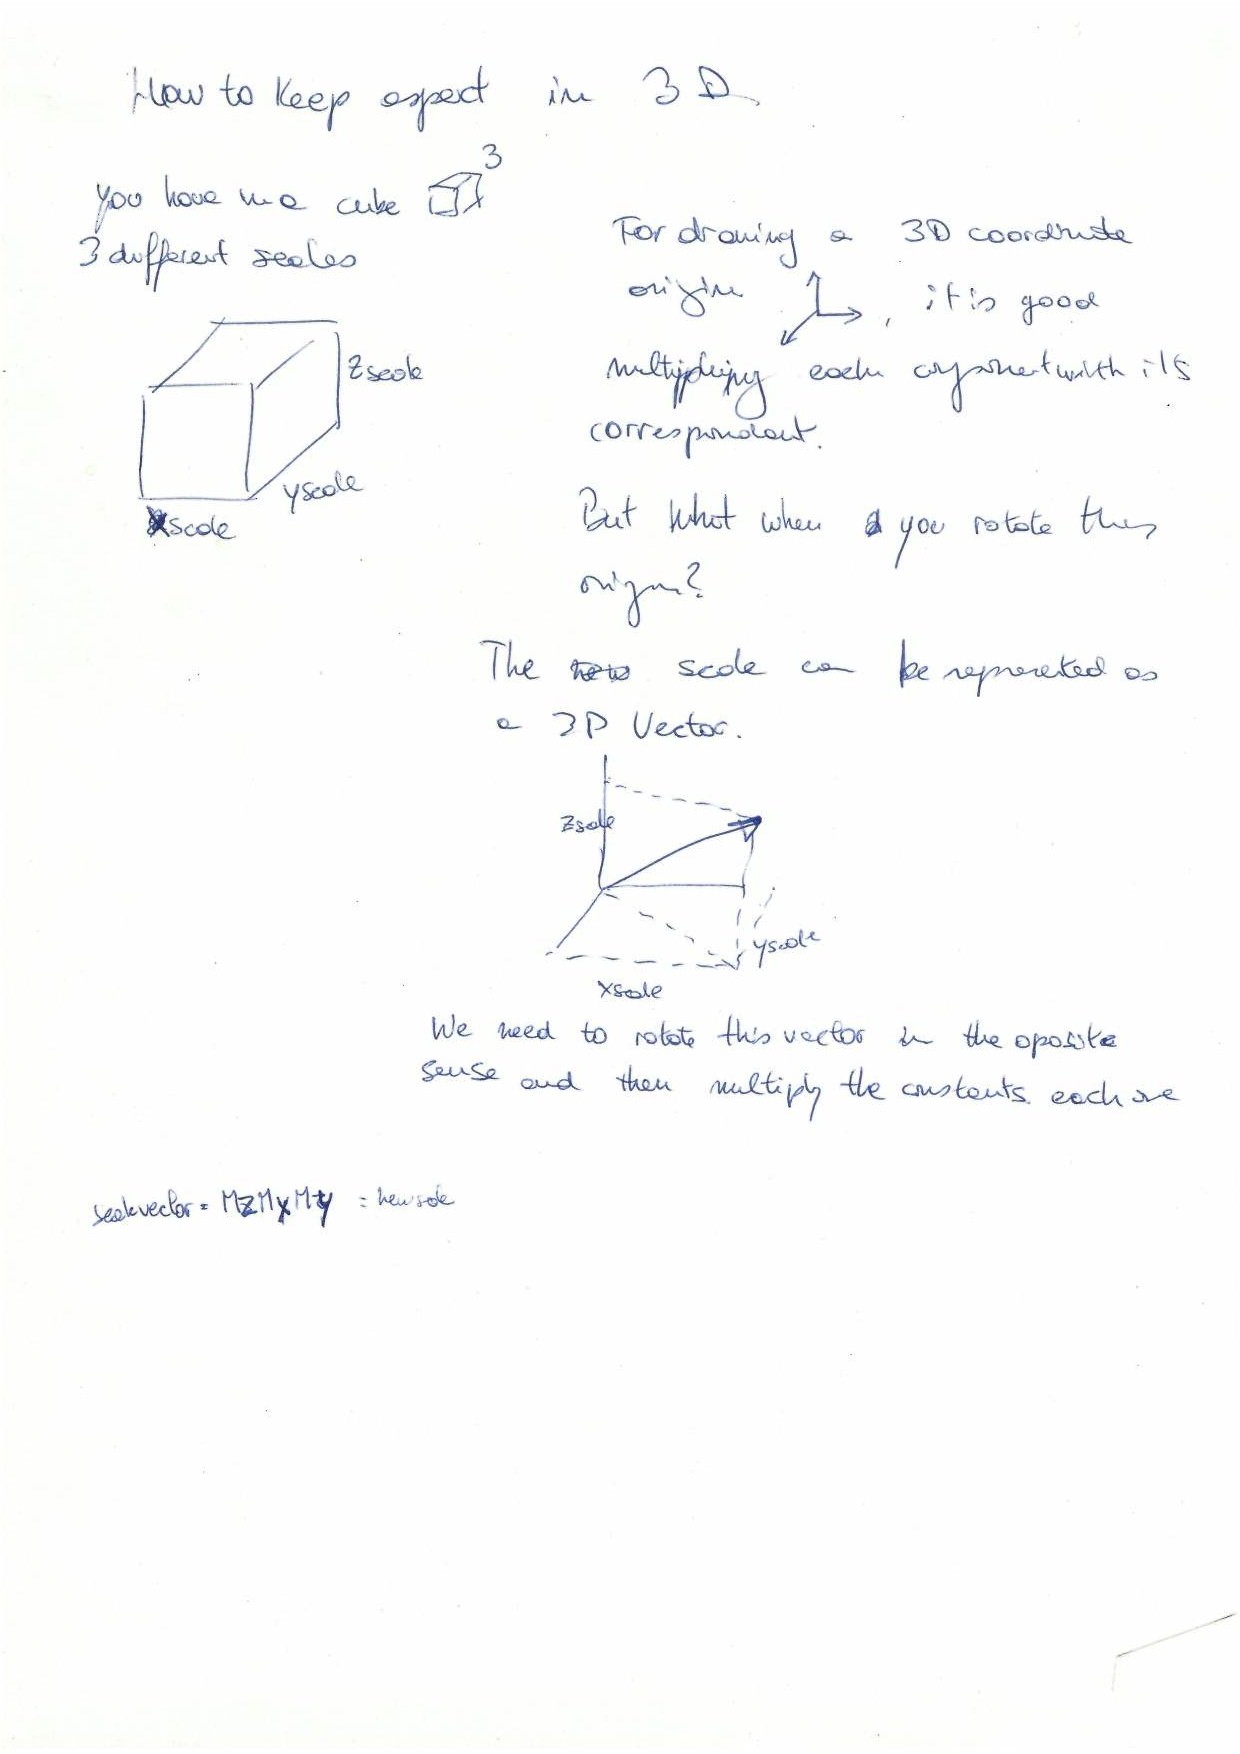 How to Keep aspect in 3D
you have in a cube 3
3 different scales
Zscale
yscale
xscale
For drawing a 3D coordinate
origin , it is good
multiplying each component with its
correspondant.
But what when you rotate this
origin?
The new scale can be represented as
a 3D Vector.
Zscale
yscale
xscale
We need to rotate this vector in the oposite
sense and then multiply the constants. each one
scalevector = MzMxMy = newscale